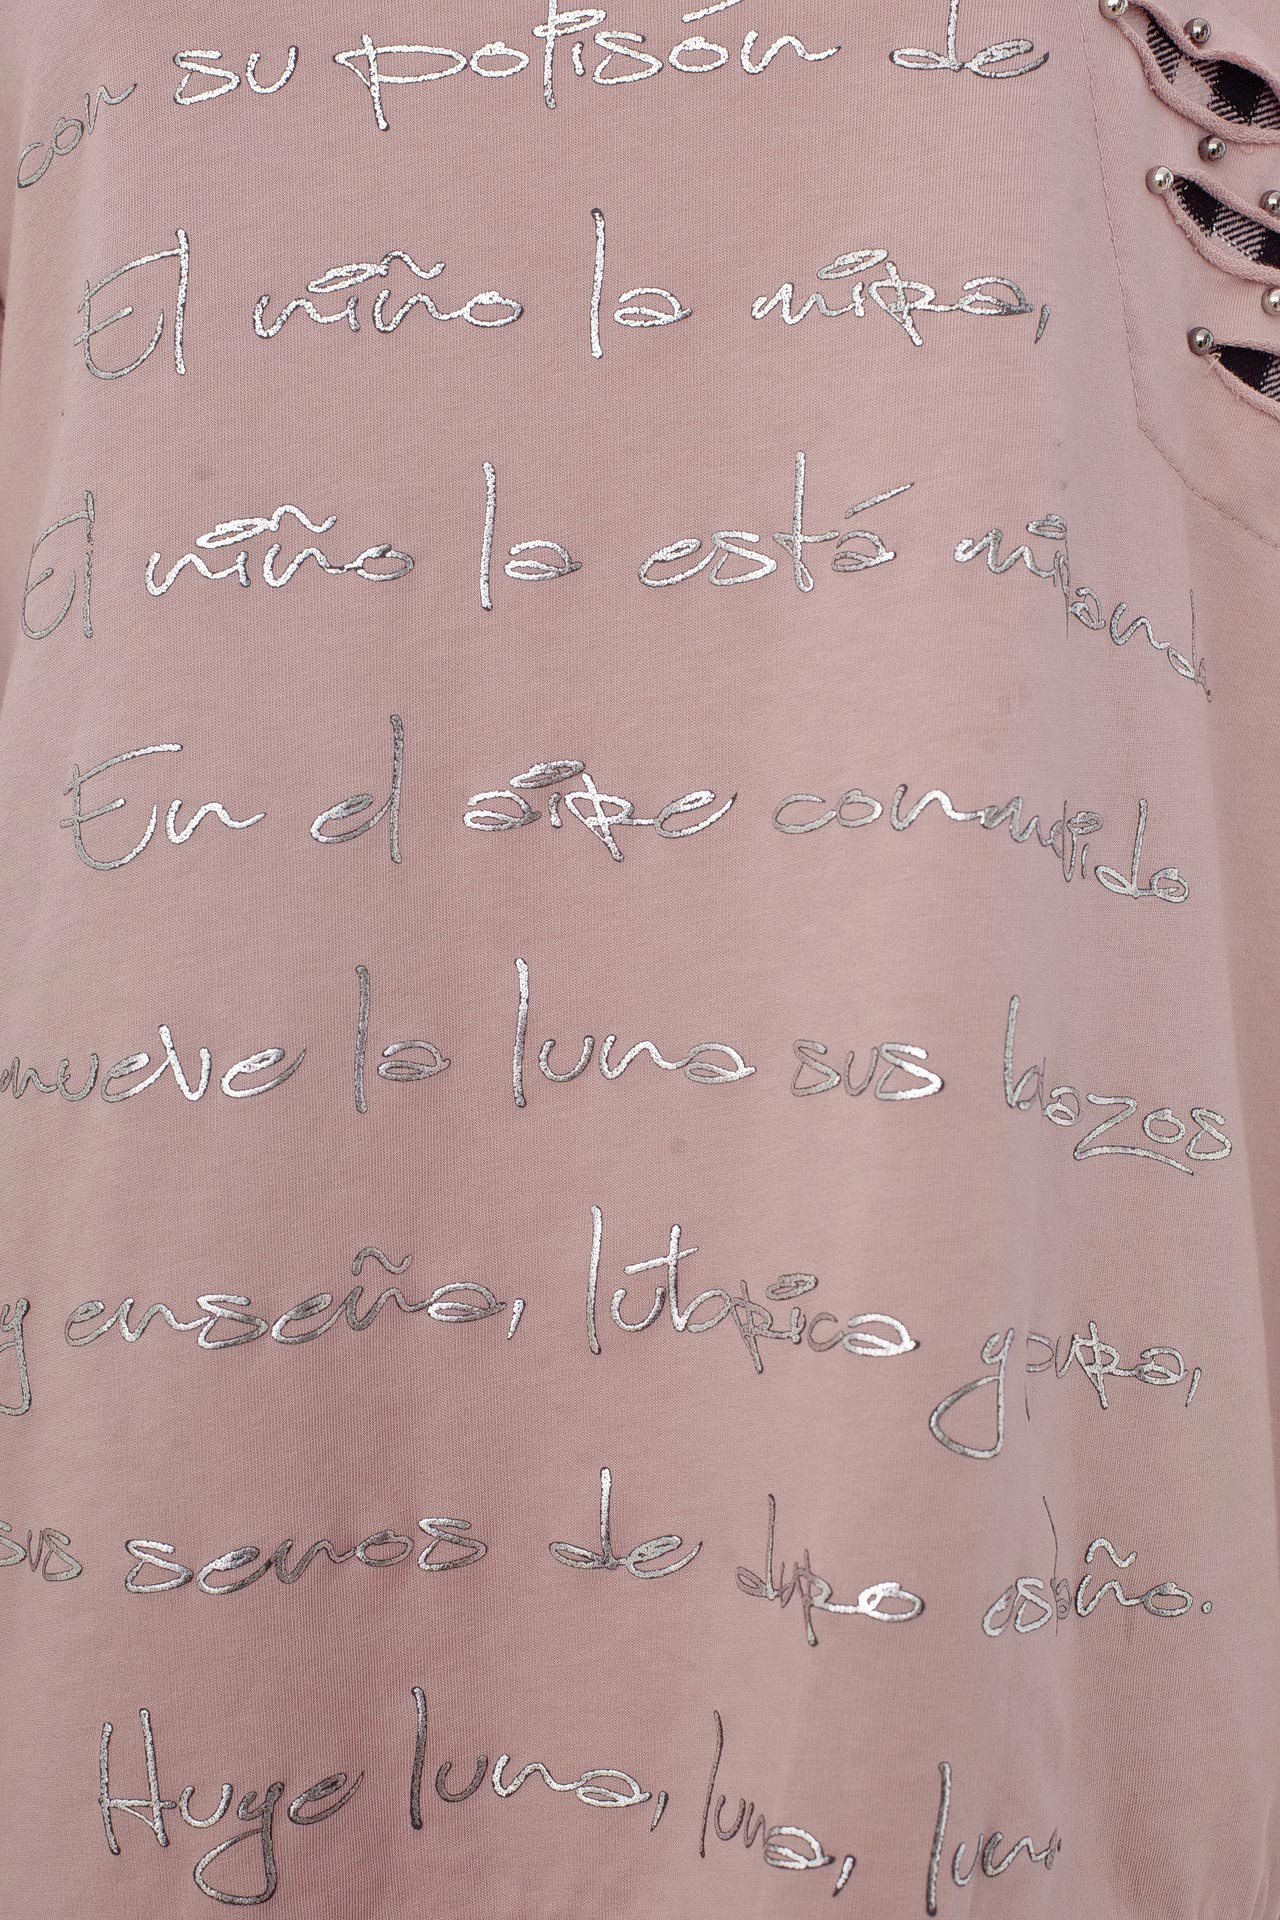 con su polisón de
El niño la mira,
El niño la está mirando
En el aire conmovido
mueve la luna sus brazos
y enseña, lutarica y pura,
sus senos de duro estaño.
Huge luna, luna, luna